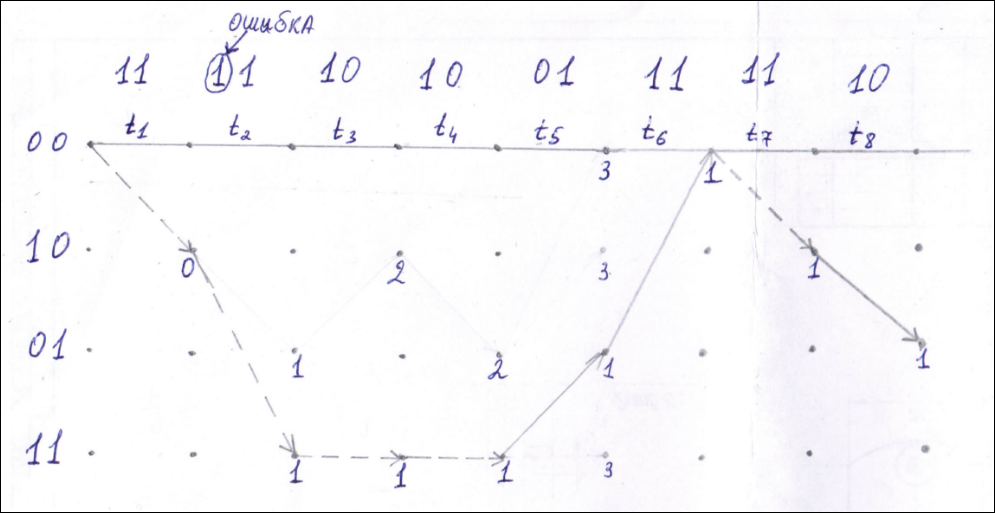 ОШИБКА
11 11 10 10 01 11 11 10
t1 t2 t3 t4 t5 t6 t7 t8
00
3 1
10
0 2 3 1
01
1 2 1 1
11
1 1 1 3